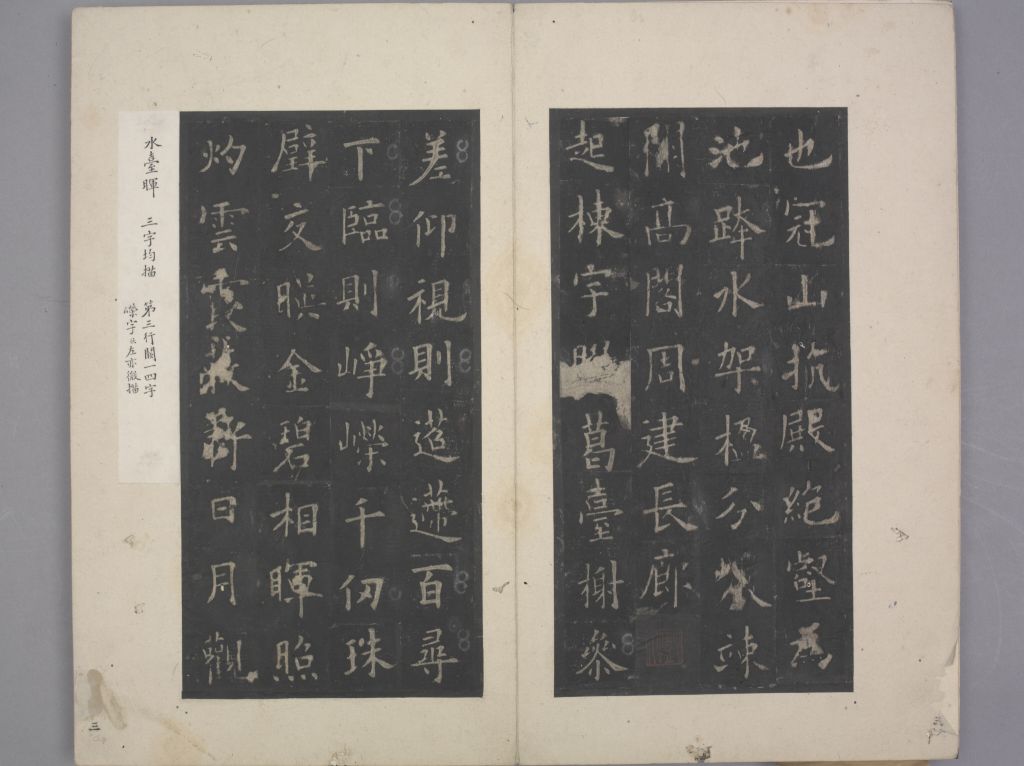 也冠山抗殿絕壑為
池跨水架楹分竦
閣周建長廊
起棟宇膠葛臺榭參
差仰視則迢遰百尋
下臨則崢嶸千仞珠
璧交暎金碧相暉照
灼雲霞蔽虧日月觀
水臺暉 三字均描 第三行闕一四字
嶸字左亦微描
三